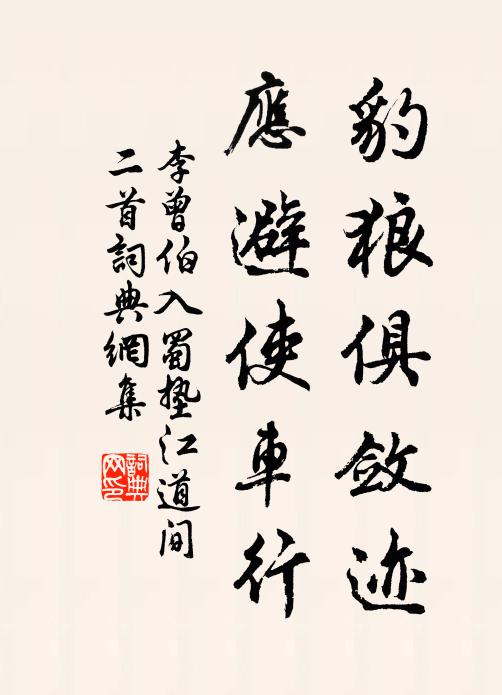 豹狼俱敛迹
應避使車行
李曾伯入蜀墊江道间
二首詞典網集
詞典
网印